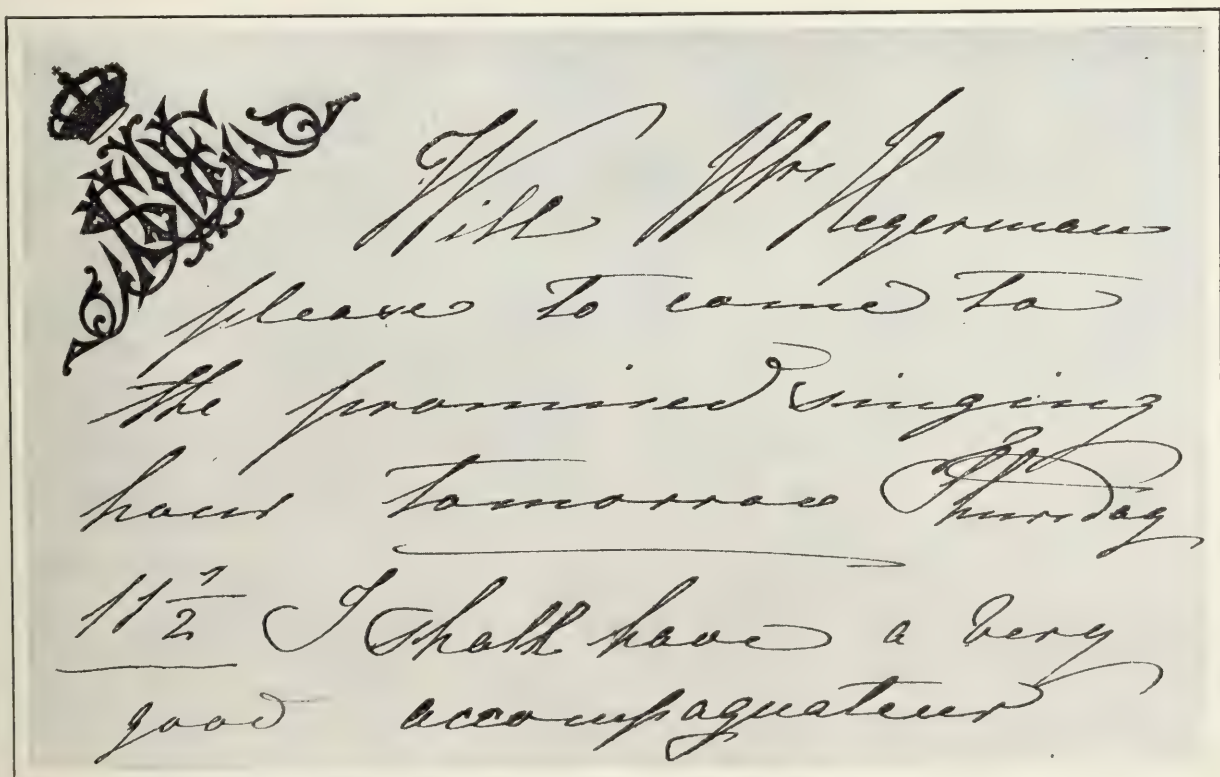 Will Mrs Hegerman
please to come to
the promised singing
hour tomorrow Thursday
11 1/2 I shall have a very
good accompagnateur